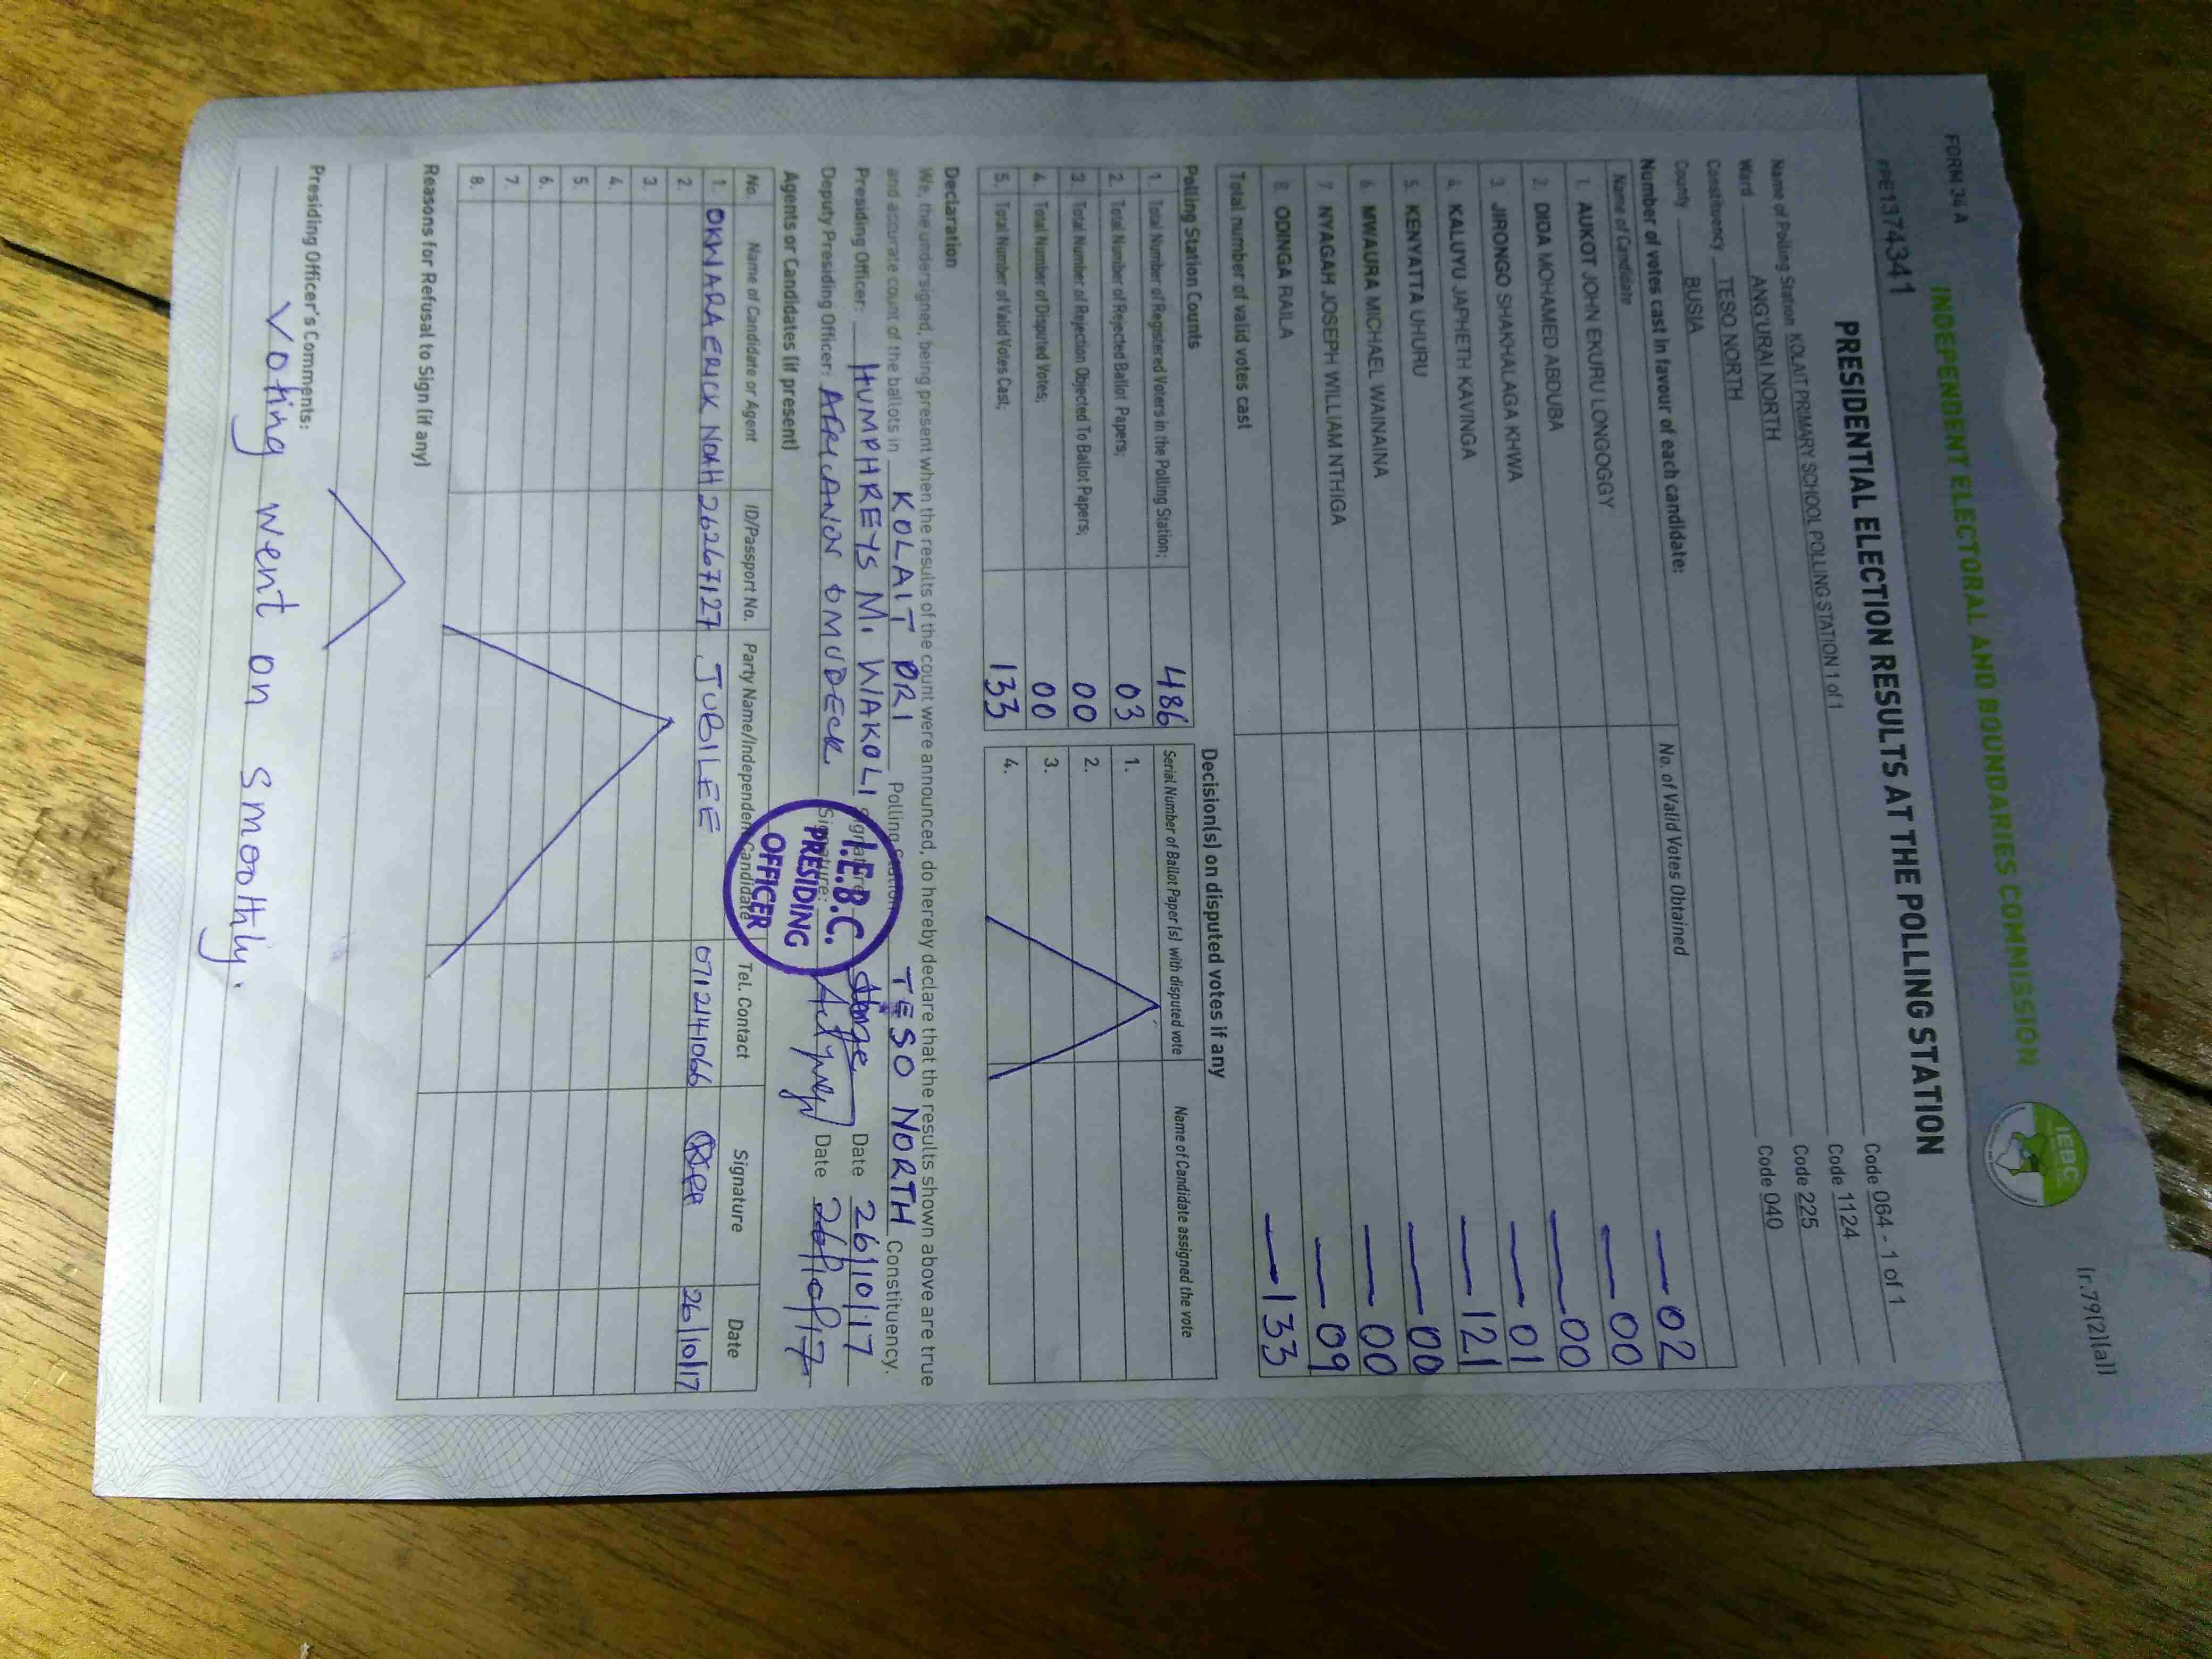 FORM 34A
(r.79(2)(a))
INDEPENDENT ELECTORAL AND BOUNDARIES COMMISSION
IEBC
PRESIDENTIAL ELECTION RESULTS AT THE POLLING STATION
Name of Polling Station KOLAIT PRIMARY SCHOOL POLLING STATION 1 of 1 Code 064 - 1 of 1
Ward ANG'URAI NORTH Code 1124
Constituency TESO NORTH Code 225
County BUSIA Code 040
Number of votes cast in favour of each candidate:
Name of Candidate No. of Valid Votes Obtained
1. AUKOT JOHN EKURU LONGOGGY — 02
2. DIDA MOHAMED ABDUBA — 00
3. JIRONGO SHAKHALAGA KHWA — 00
4. KALUYU JAPHETH KAVINGA — 01
5. KENYATTA UHURU — 121
6. MWAURA MICHAEL WAINAINA — 00
7. NYAGAH JOSEPH WILLIAM NTHIGA — 00
8. ODINGA RAILA — 09
Total number of valid votes cast — 133
Polling Station Counts
1. Total Number of Registered Voters in the Polling Station; 486
2. Total Number of Rejected Ballot Papers; 03
3. Total Number of Rejection Objected To Ballot Papers; 00
4. Total Number of Disputed Votes; 00
5. Total Number of Valid Votes Cast; 133
Decision(s) on disputed votes if any
Serial Number of Ballot Paper (s) with disputed vote Name of Candidate assigned the vote
1.
2.
3.
4.
Declaration
We, the undersigned, being present when the results of the count were announced, do hereby declare that the results shown above are true
and accurate count of the ballots in KOLAIT PRI Polling Station TESO NORTH Constituency.
Presiding Officer: HUMPHREYS M. WAKOLI Signature Date 26/10/17
Deputy Presiding Officer: AFRICANUS OMUDECK Signature: Date 26/10/17
I.E.B.C.
PRESIDING
OFFICER
Agents or Candidates (if present)
No. Name of Candidate or Agent ID/Passport No. Party Name/Independent Candidate Tel. Contact Signature Date
1. OKWARA ERICK NOAH 26267127 JUBILEE 0712141066 26/10/17
2.
3.
4.
5.
6.
7.
8.
Reasons for Refusal to Sign (if any)
Presiding Officer's Comments:
Voting went on smoothly.